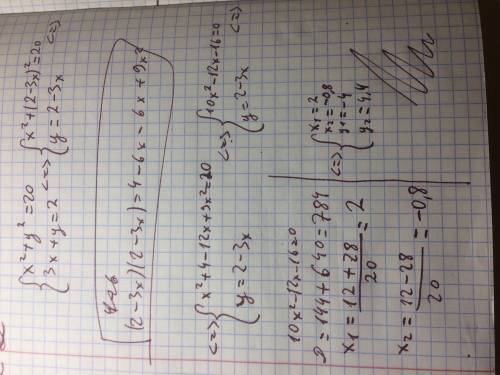 {x²+y²=20 {3x+y=2 <=> {x²+(2-3x)²=20 {y=2-3x <=>
(2-3x)(2-3x)=4-6x-6x+9x²
<=> {x²+4-12x+9x²=20 {y=2-3x <=> {10x²-12x-16=0 {y=2-3x <=>
10x²-12x-16=0
D=144+640=784
x₁=12+28/20=2
x₂=12-28/20=-0,8
<=> {x₁=2
x₂=-0,8
y₁=-4
y₂=4,4